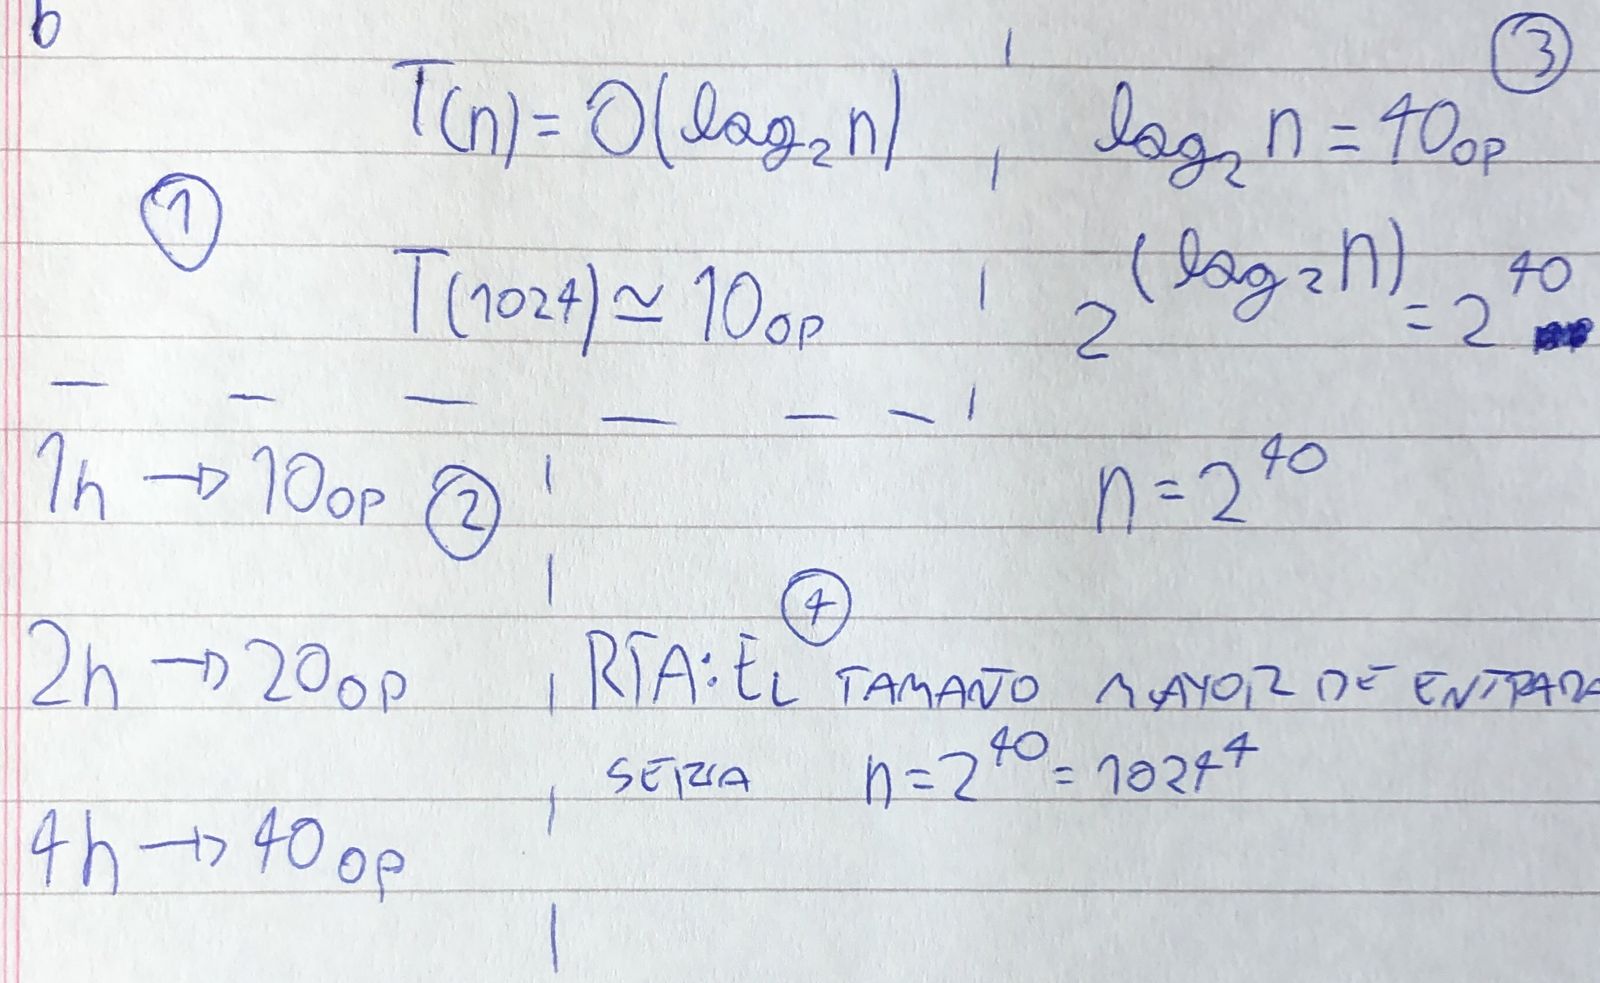 b
T(n) = O(log₂ n)
①
T(1024) ≃ 10 OP
1h → 10 OP ②
2h → 20 OP
4h → 40 OP
③
log₂ n = 40 OP
2^(log₂ n) = 2^40
n = 2^40
④
RTA: EL TAMAÑO MAYOR DE ENTRADA
SERIA n = 2^40 = 1024^4